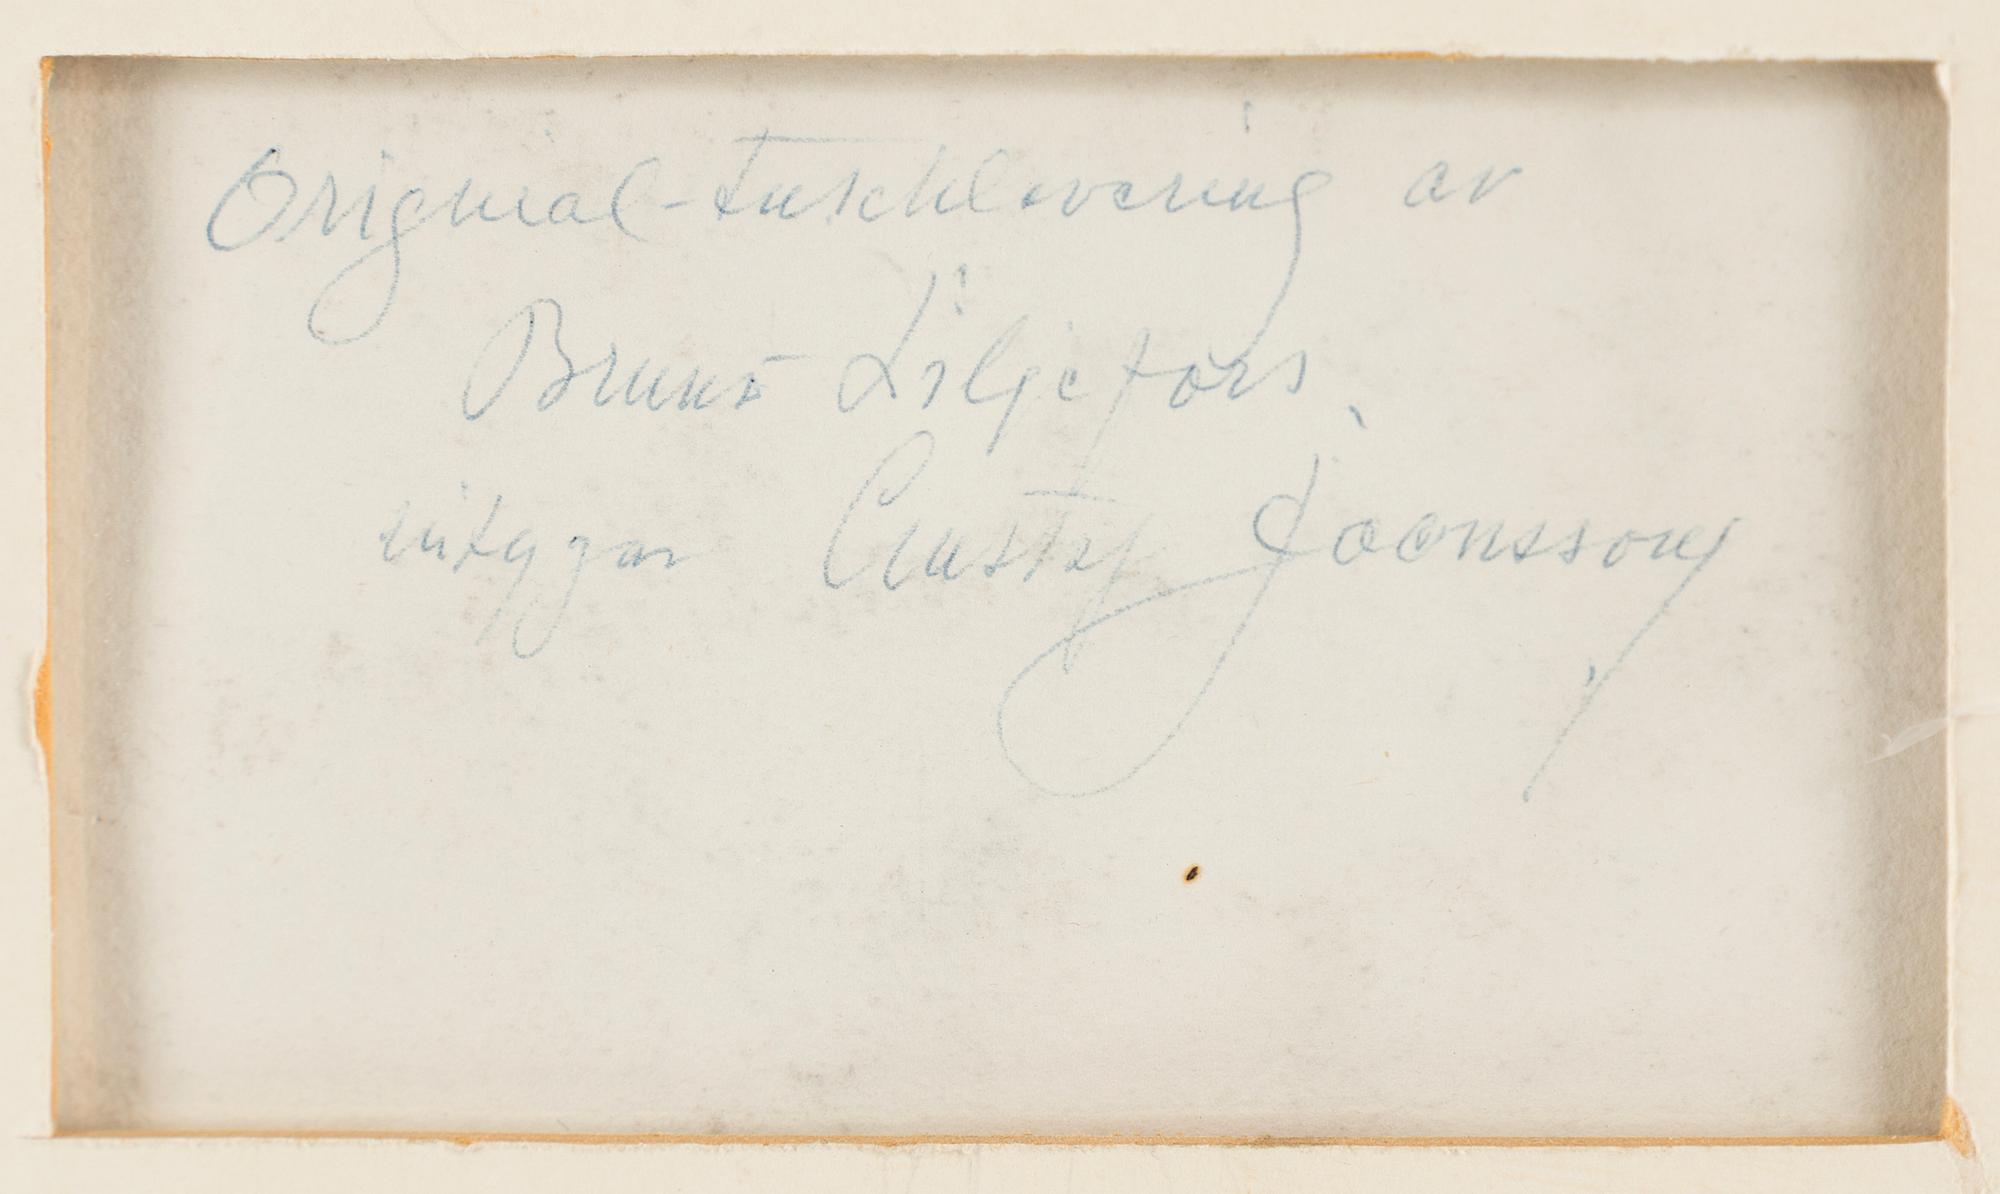 Original-tuschlavering av
Bruno Liljefors,
intygar Gustaf Joonsson